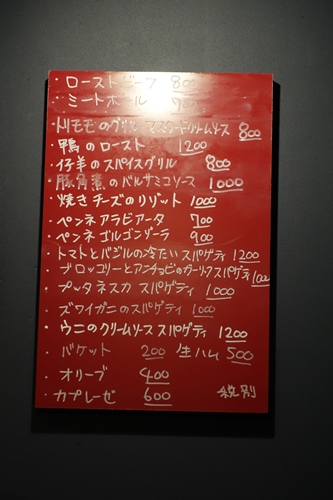 ・ローストビーフ 800
・ミートボール 700
・トリモモのグリル マスタードクリームソース 800
・鴨のロースト 1200
・仔羊のスパイスグリル 800
・豚角煮のバルサミコソース 1000
・焼きチーズのリゾット 1000
・ペンネアラビアータ 700
・ペンネゴルゴンゾーラ 900
・トマトとバジルの冷たいスパゲティ 1200
・ブロッコリーとアンチョビのガーリックスパゲティ 1000
・プッタネスカ スパゲティ 1000
・ズワイガニのスパゲティ 1000
・ウニのクリームソーススパゲティ 1200
・バケット 200 生ハム 500
・オリーブ 400
・カプレーゼ 600 税別